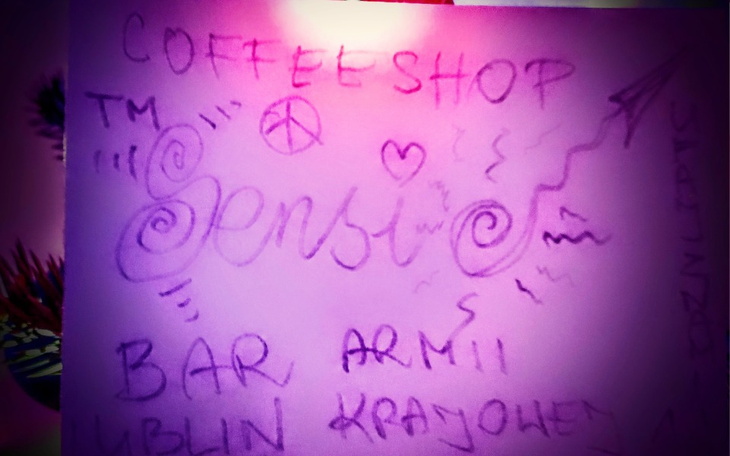 COFFEESHOP
TM
Sensi
BAR ARMII
LUBLIN KRAJOWEJ